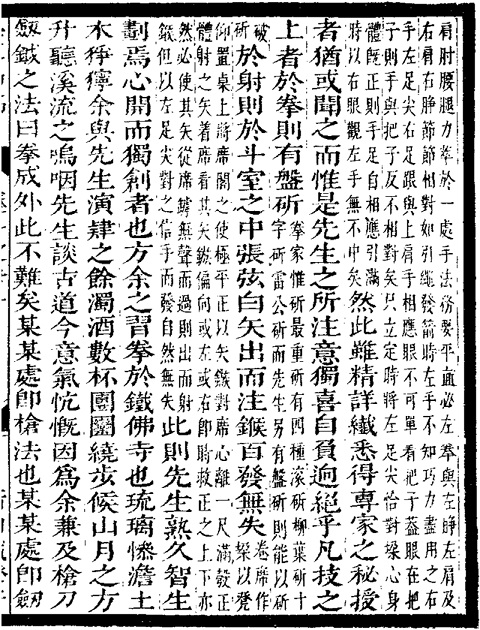 肩肘腰腿力萃於一處手法務要平直必左拳與左睁左肩及
右肩右睁節節相對如引繩發箭時左手不知巧力盡用之右
手左足尖右足跟與上肩手相應眼不可單看把子葢眼在把
子則手與把子反不相對矣只立定時將左足尖恰對垜心身
體旣正則手足自相應引滿
時以右眼觀左手無不中矣
然此雖精詳纎悉得專家之秘授
者猶或聞之而惟是先生之所注意獨喜自負逈絕乎凡技之
上者於拳則有盤斫
拳家惟斫最重斫有四種滾斫柳葉斫十
字斫雷公斫而先生另有盤斫則能以斫
破
斫
於射則於斗室之中張弦白矢出而注鏃百發無失
卷席作
垜以凳
仰置桌上將席閣之使極平正以矢鏃對席心離一尺滿彀正
體射之矢着席看其矢鏃偏向或左或右卽時救正之上下亦
然必使其矢從席罅無聲而過則出而射
鏃但以左足尖對之信手而發自然無失
此則先生熟久智生
劃焉心開而獨創者也方余之習拳於鐵佛寺也琉璃慘澹土
木猙獰余與先生演肄之餘濁酒數杯團圞繞步候山月之方
升聽溪流之嗚咽先生談古道今意氣忼慨因爲余兼及槍刀
劔鉞之法曰拳成外此不難矣某某處卽槍法也某某處卽劔